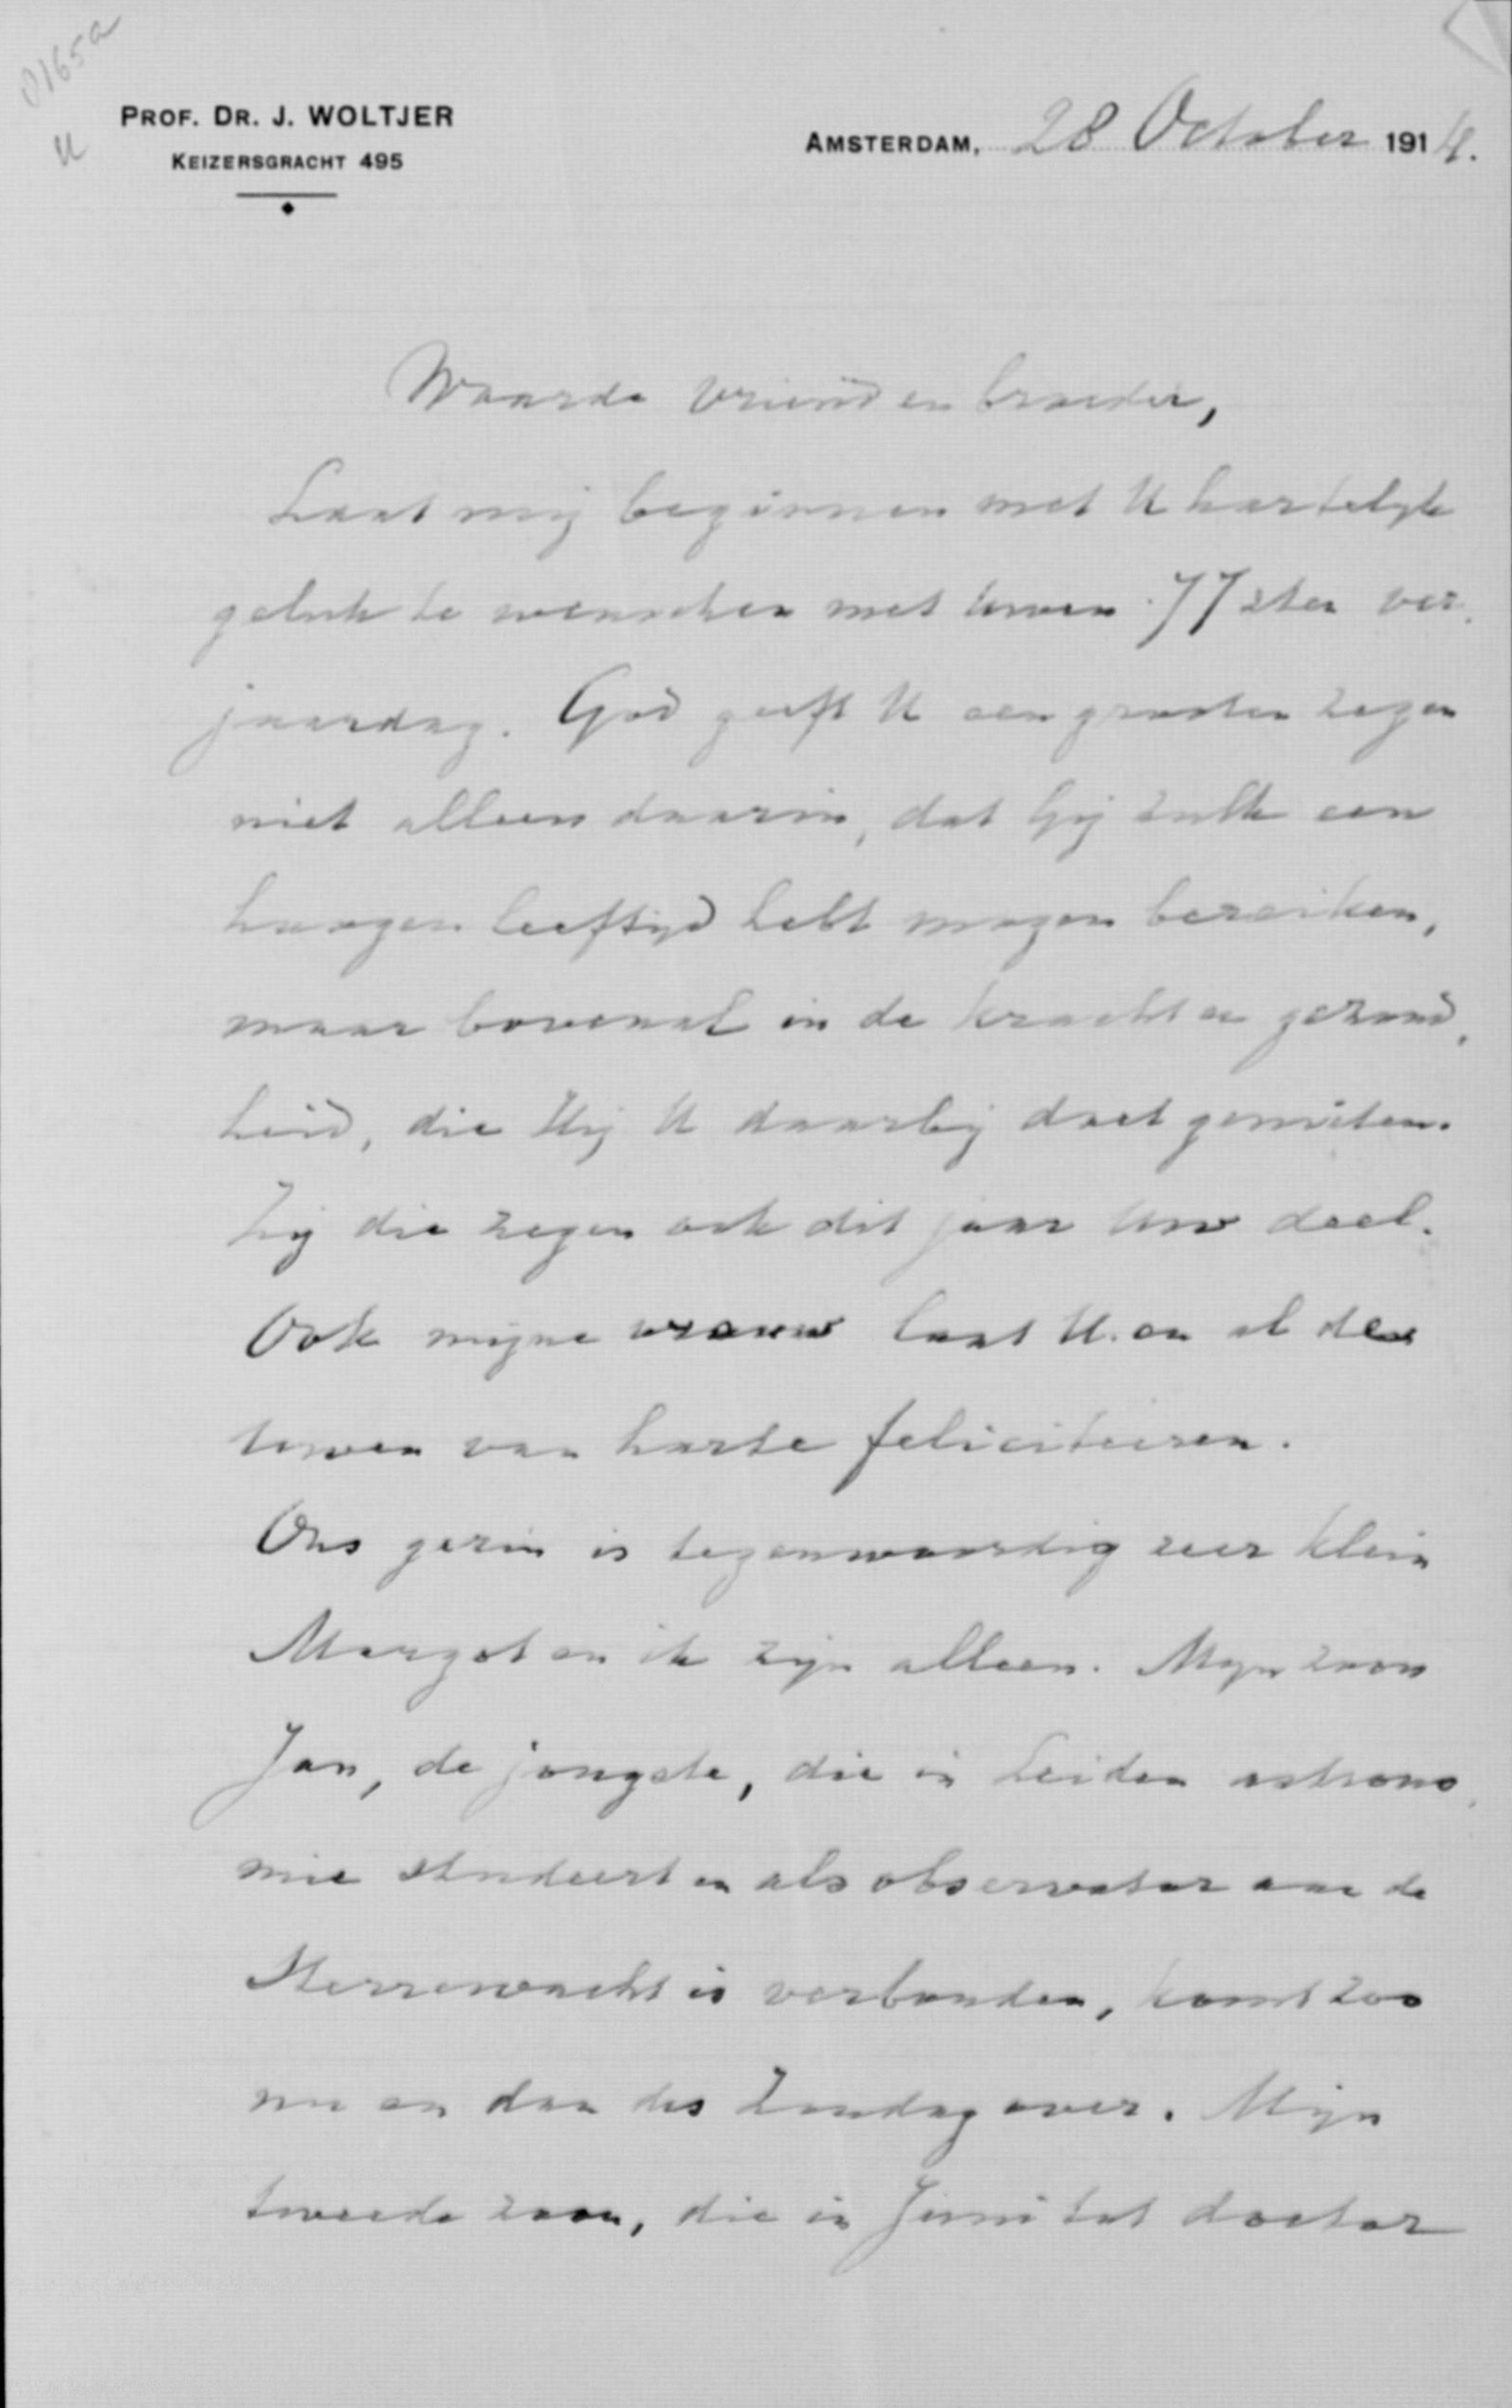 0165a
U
PROF. DR. J. WOLTJER
KEIZERSGRACHT 495
AMSTERDAM, 28 October 1914.
Waarde vriend en broeder,
Laat mij beginnen met U hartelijk
geluk te wenschen met Uwen 77sten ver-
jaardag. God geeft U een grooten zegen
niet alleen daarin, dat Gij zulk een
hoogen leeftijd hebt mogen bereiken,
maar bovenal in de kracht en gezond-
heid, die Hij U daarbij doet genieten.
Zij die zegen ook dit jaar Uw deel.
Ook mijne vrouw laat U en al den
Uwen van harte feliciteeren.
Ons gezin is tegenwoordig zeer klein
Margot en ik zijn alleen. Mijn zoon
Jan, de jongste, die in Leiden astrono-
mie studeert en als observator aan de
Sterrewacht is verbonden, komt zoo
nu en dan des Zondag over. Mijn
tweede zoon, die in Juni tot doctor